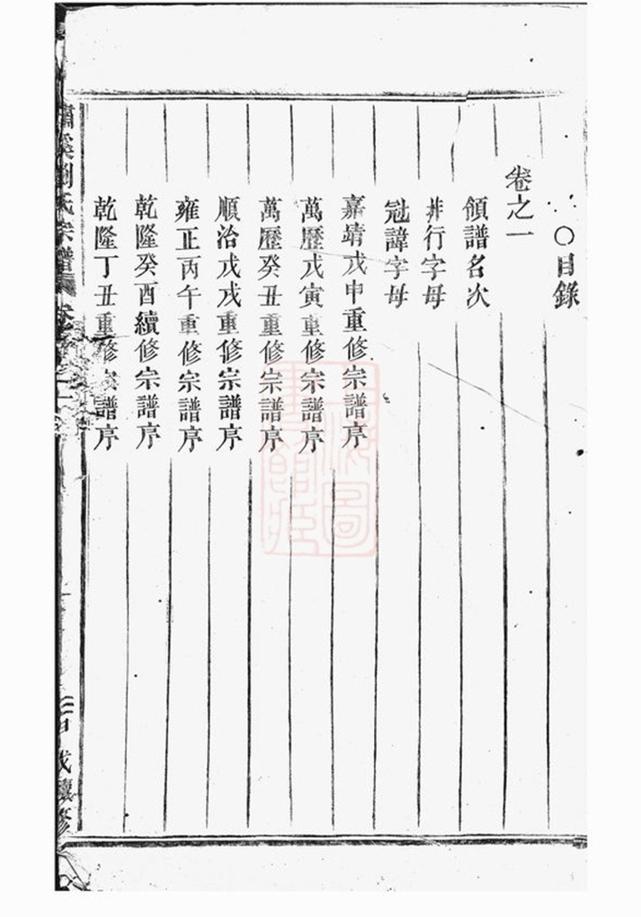 ○目錄
卷之一
領譜名次
排行字母
冠諱字母
嘉靖戊申重修宗譜序
萬歷戊寅重修宗譜序
萬歷癸丑重修宗譜序
順治戊戌重修宗譜序
雍正丙午重修宗譜序
乾隆癸酉續修宗譜序
乾隆丁丑重修宗譜序
溪劉氏宗譜 卷
戌續修